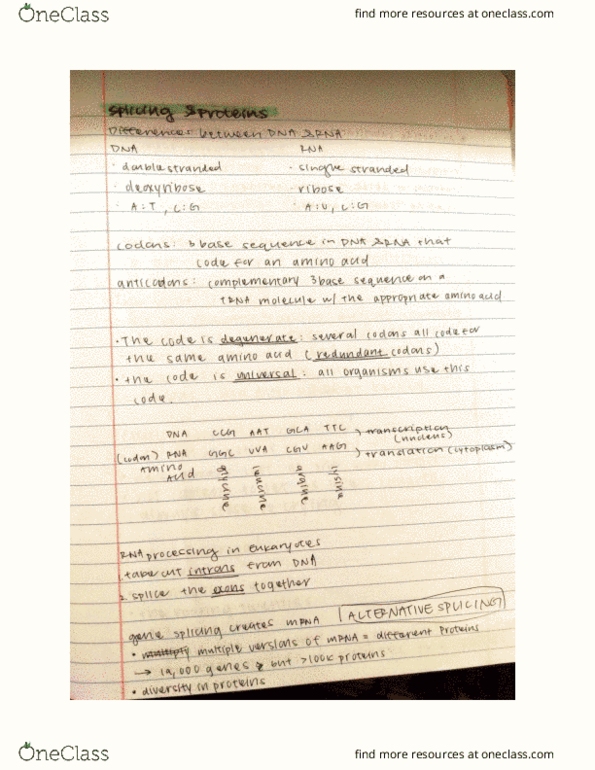 OneClass find more resources at oneclass.com
splicing & Proteins
Differences between DNA & RNA
DNA RNA
· double stranded · single stranded
· deoxyribose · ribose
· A:T, C:G · A:U, C:G
codons: 3 base sequence in DNA & RNA that
code for an amino acid
anticodons: complementary 3 base sequence on a
tRNA molecule w/ the appropriate amino acid
· The code is degenerate: several codons all code for
the same amino acid (redundant codons)
· the code is universal: all organisms use this
code.
DNA CCG AAT GCA TTC ) transcription
(nucleus)
(codon) RNA GGC UUA CGU AAG ) translation (cytoplasm)
Amino
Acid glycine leucine argine lysine
RNA processing in eukaryotes
1. take out introns from DNA
2. splice the exons together
gene splicing creates mRNA ALTERNATIVE SPLICING
• multiply multiple versions of mRNA = different proteins
→ 19,000 genes but >100K proteins
• diversity in proteins
OneClass find more resources at oneclass.com